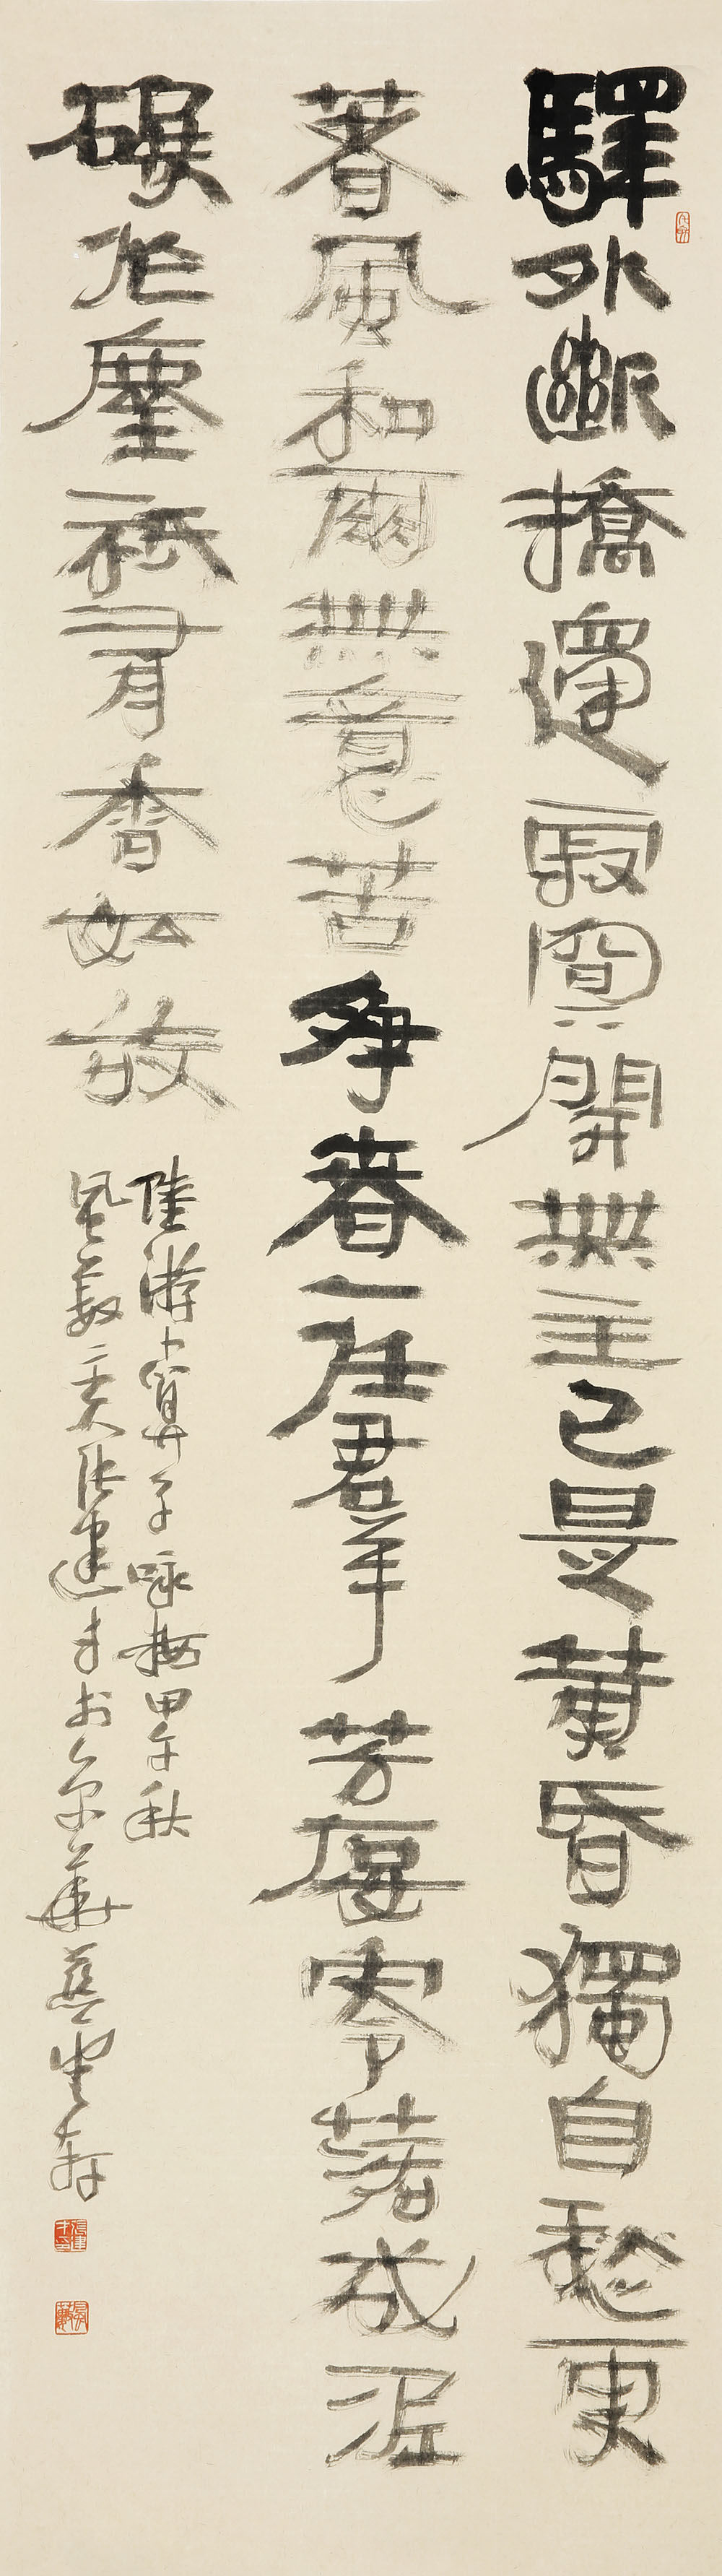 驛外斷橋邊寂寞開無主已是黃昏獨自愁更
著風和雨無意苦爭春一任羣芳妒零落成泥
碾作塵祇有香如故
陸游卜算子咏梅甲午秋
張建才於京華